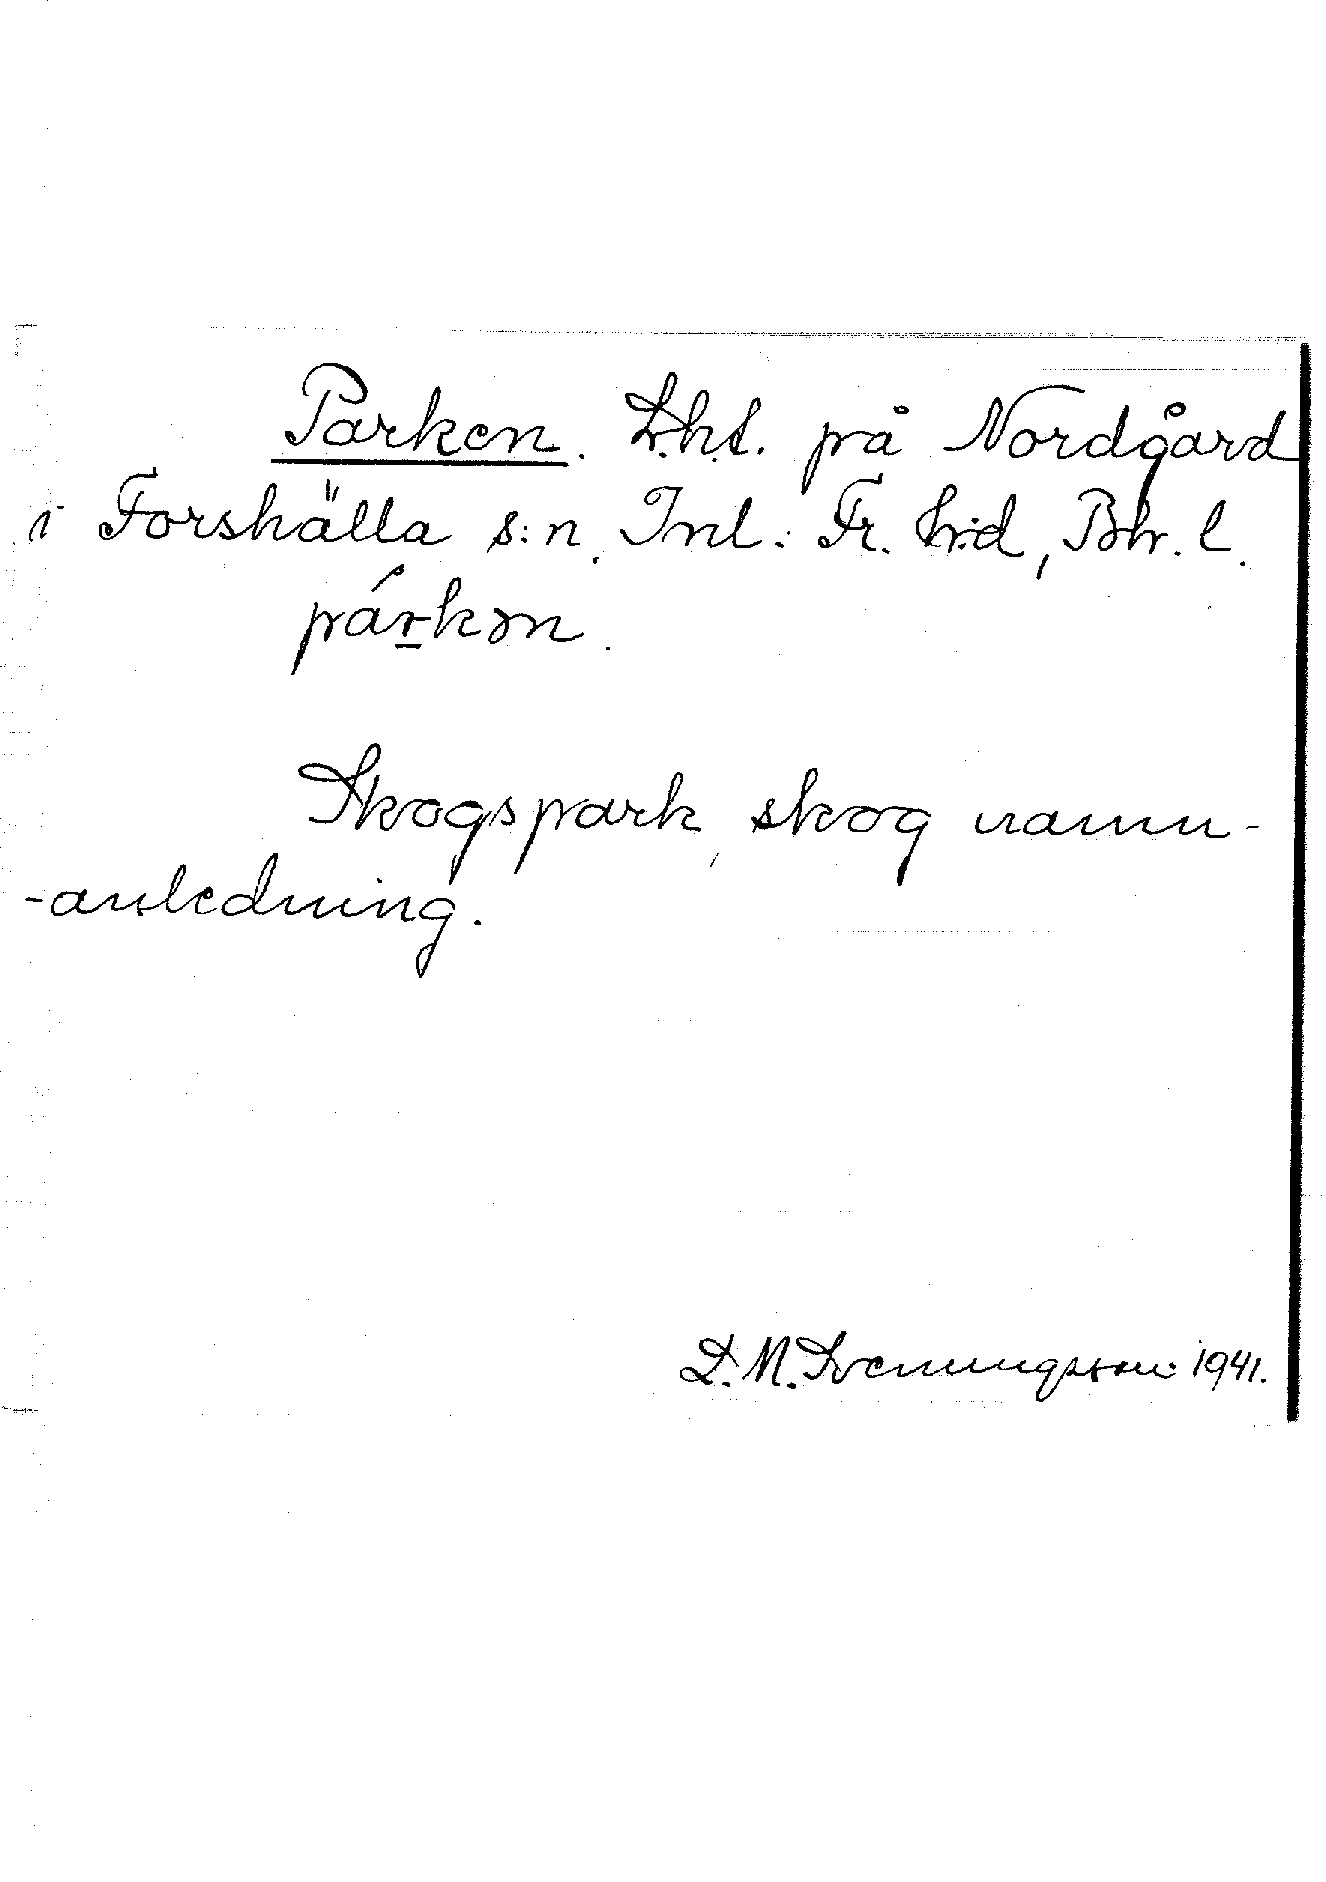 Parken. Lht. på Nordgård
i Forshälla s:n. Inl. Fr. hd, Bhr. l.
párkən.
Skogspark, skog namn-
-anledning.
D. M. Svenungsson 1941.